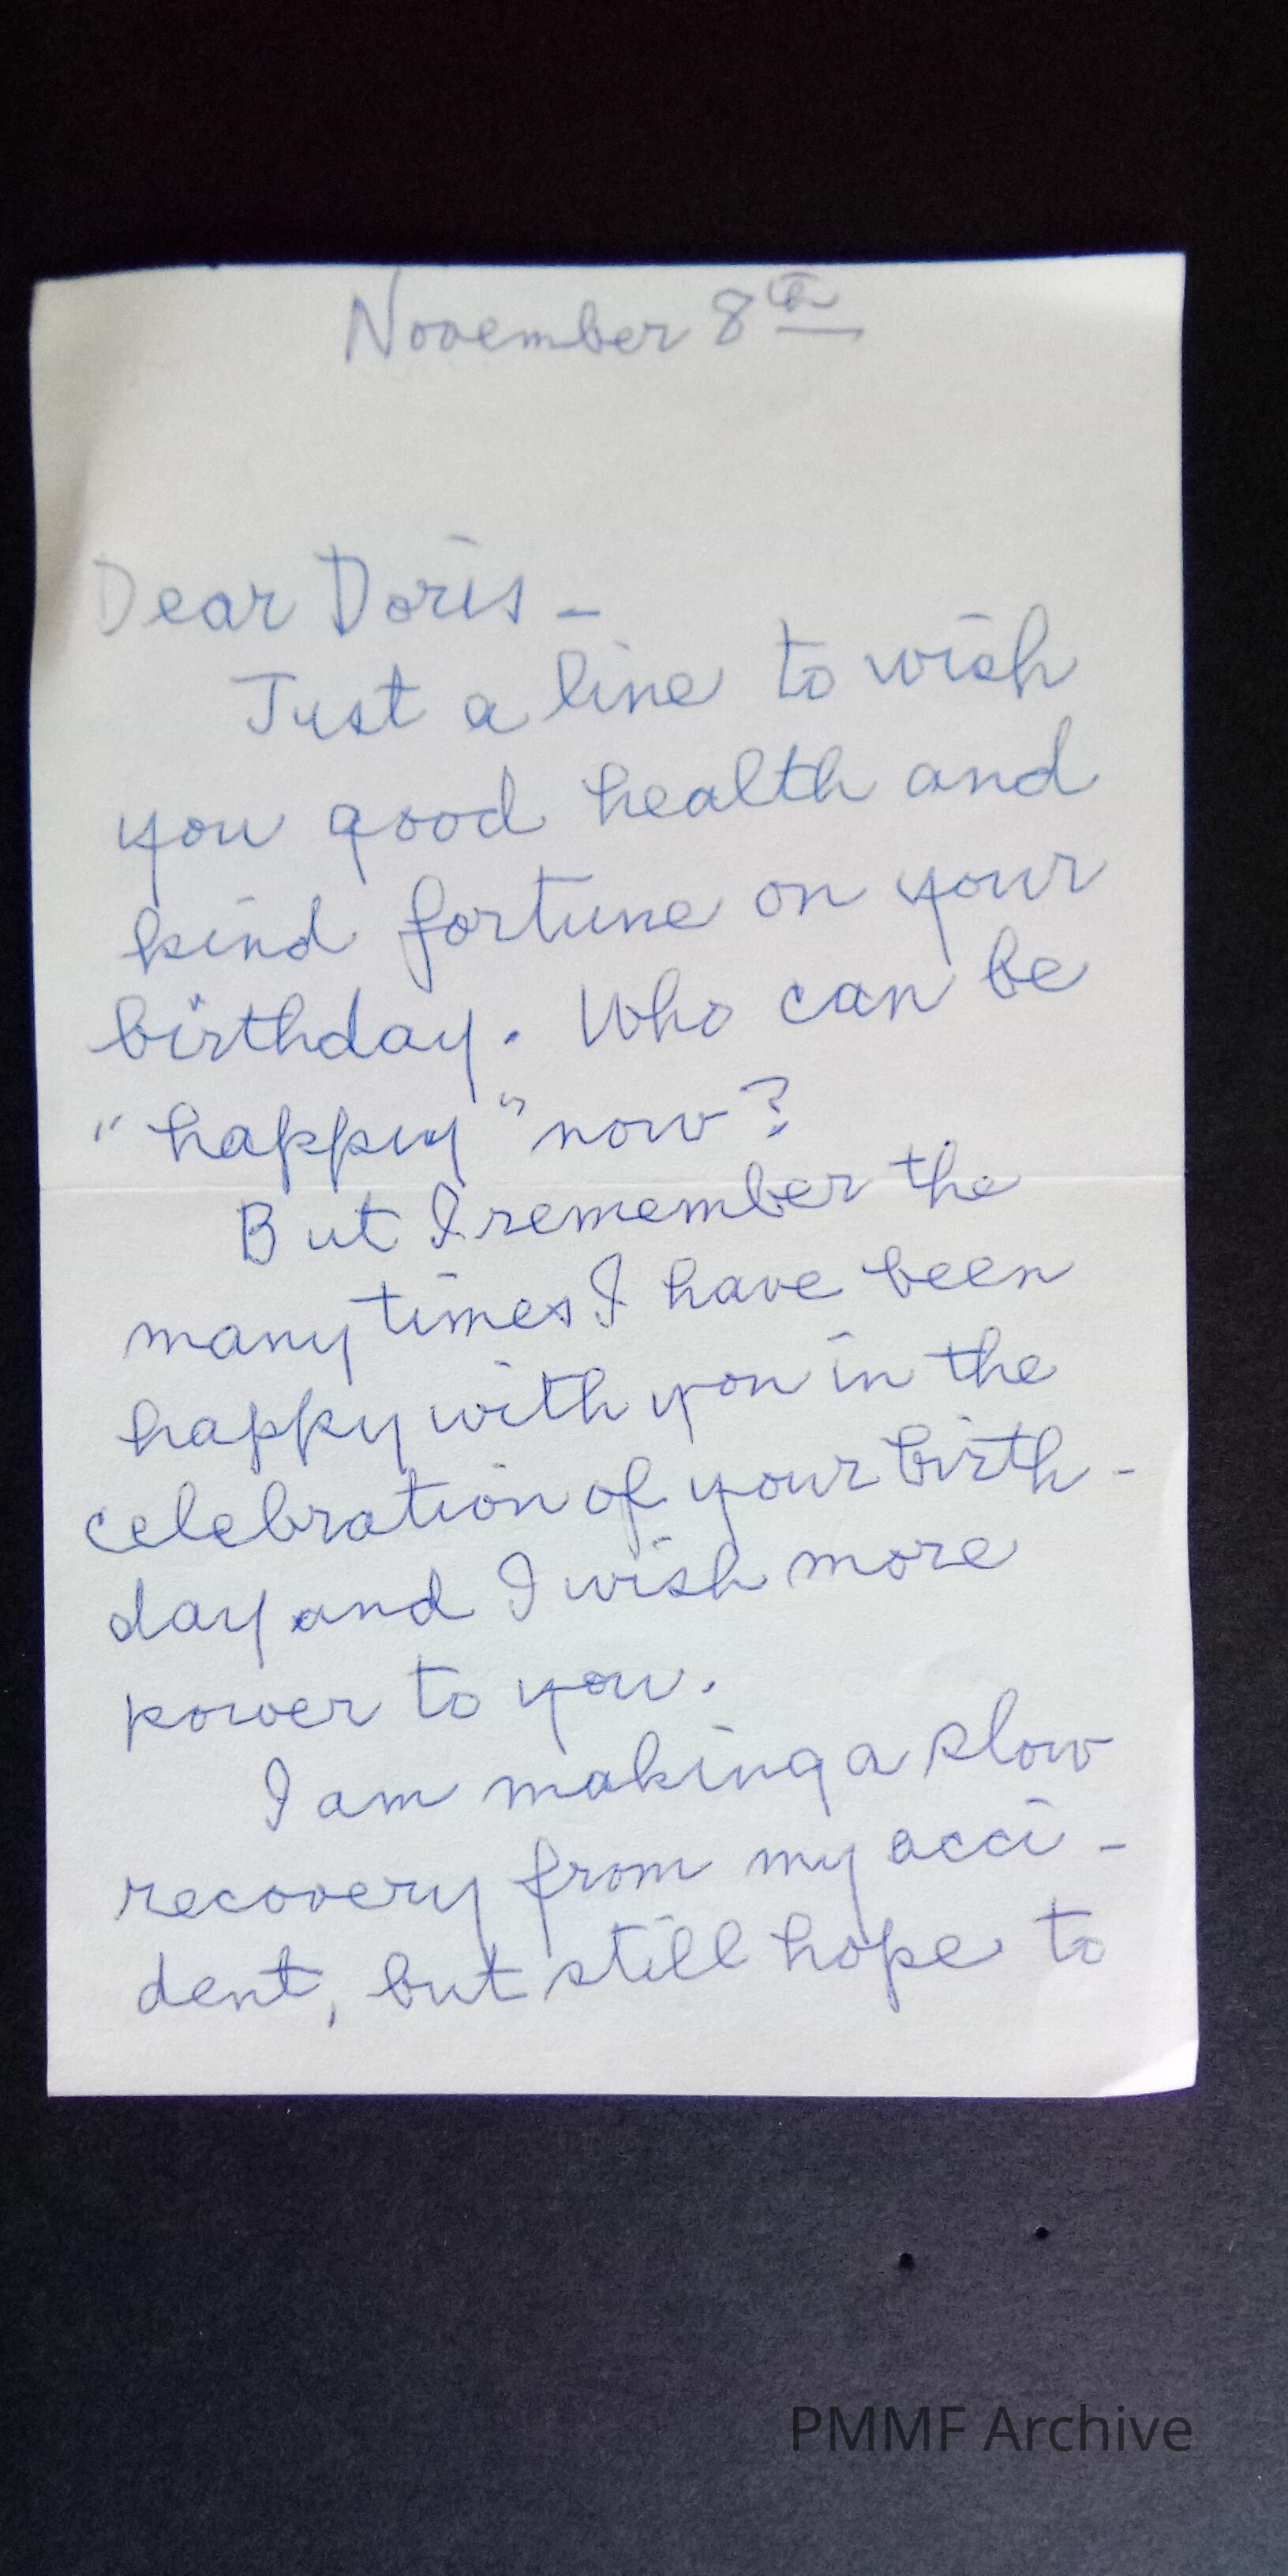 November 8th
Dear Doris –
Just a line to wish
you good health and
kind fortune on your
birthday. Who can be
"happy" now?
But I remember the
many times I have been
happy with you in the
celebration of your birth-
day and I wish more
power to you.
I am making a slow
recovery from my acci-
dent, but still hope to
PMMF Archive